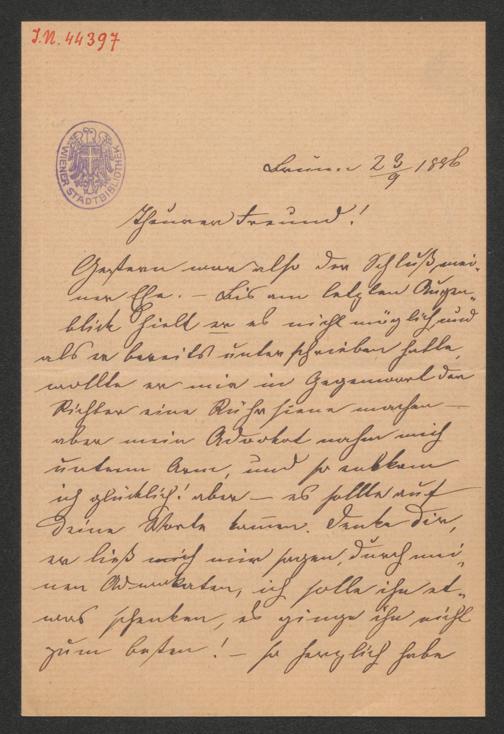 I.N. 44397
WIENER STADTBIBLIOTHEK
Brünn 23/9 1896
Theurer Freund!
Gestern war also der Schluß mei-
ner Ehe. – Bis am letzten Augen-
blick hielt er es nicht möglich und
als er bereits unterschrieben hatte,
wollte er mir in Gegenwart der
Richter eine Rührsiene machen –
aber mein Advokat nahm mich
unterm Arm, und so entkam
ich glücklich! aber – es sollte auf
Deine Worte kommen. Denke Dir,
er ließ mich mir sagen, durch mei-
nen Advokaten, ich solle ihm et-
was schenken, es ginge ihm nicht
zum besten! – so herzlich habe